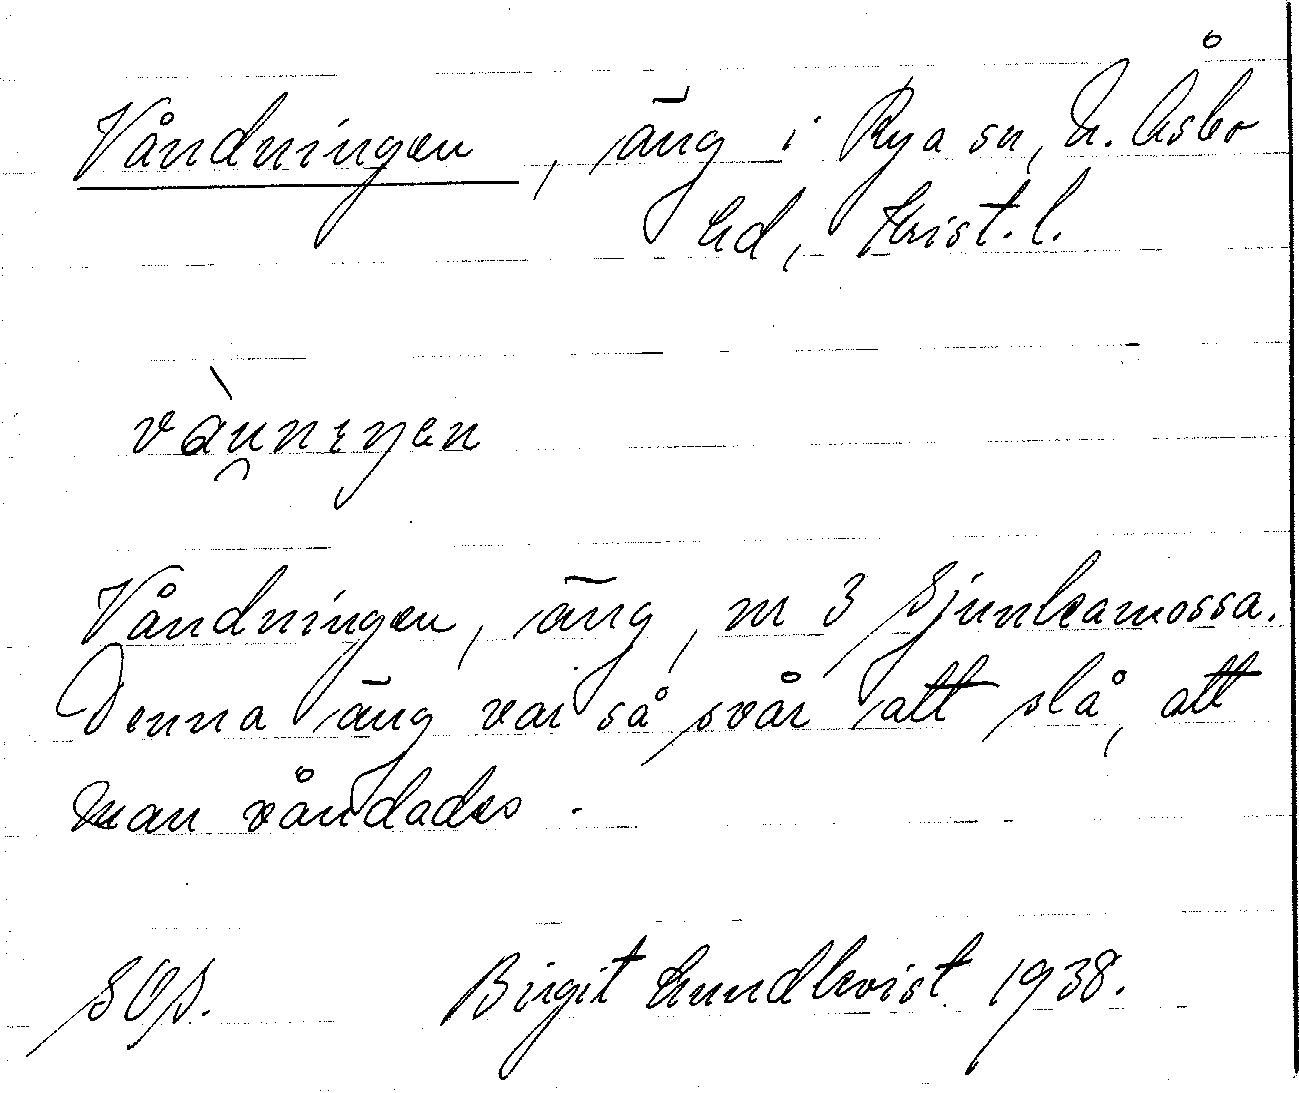 Våndningen, äng i Rya sn, N. Åsbo
hd, Krist. l.
Våndningen, äng, nr 3 Sjunkamossa.
Denna äng var så svår att slå, att
man våndades.
SOS. Birgit Lundkvist 1938.